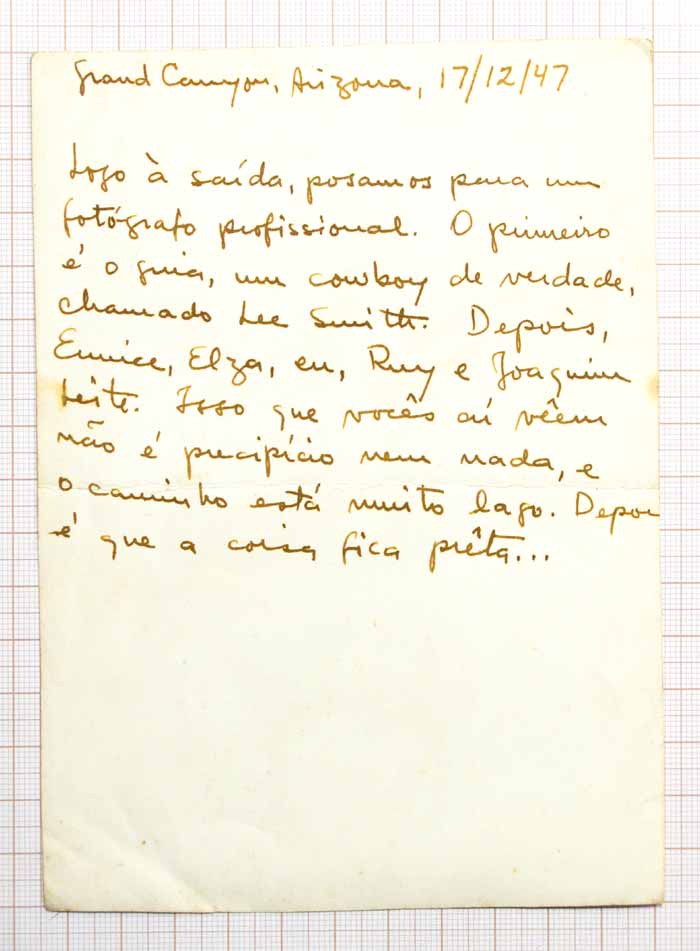 Grand Canyon, Arizona, 17/12/47
Logo à saída, posamos para um
fotógrafo profissional. O primeiro
é o guia, um cowboy de verdade,
chamado Lee Smith. Depois,
Eunice, Elza, eu, Ruy e Joaquim
Leite. Isso que vocês aí vêem
não é precipício nem nada, e
o caminho está muito lago. Depoi
é que a coisa fica prêta...